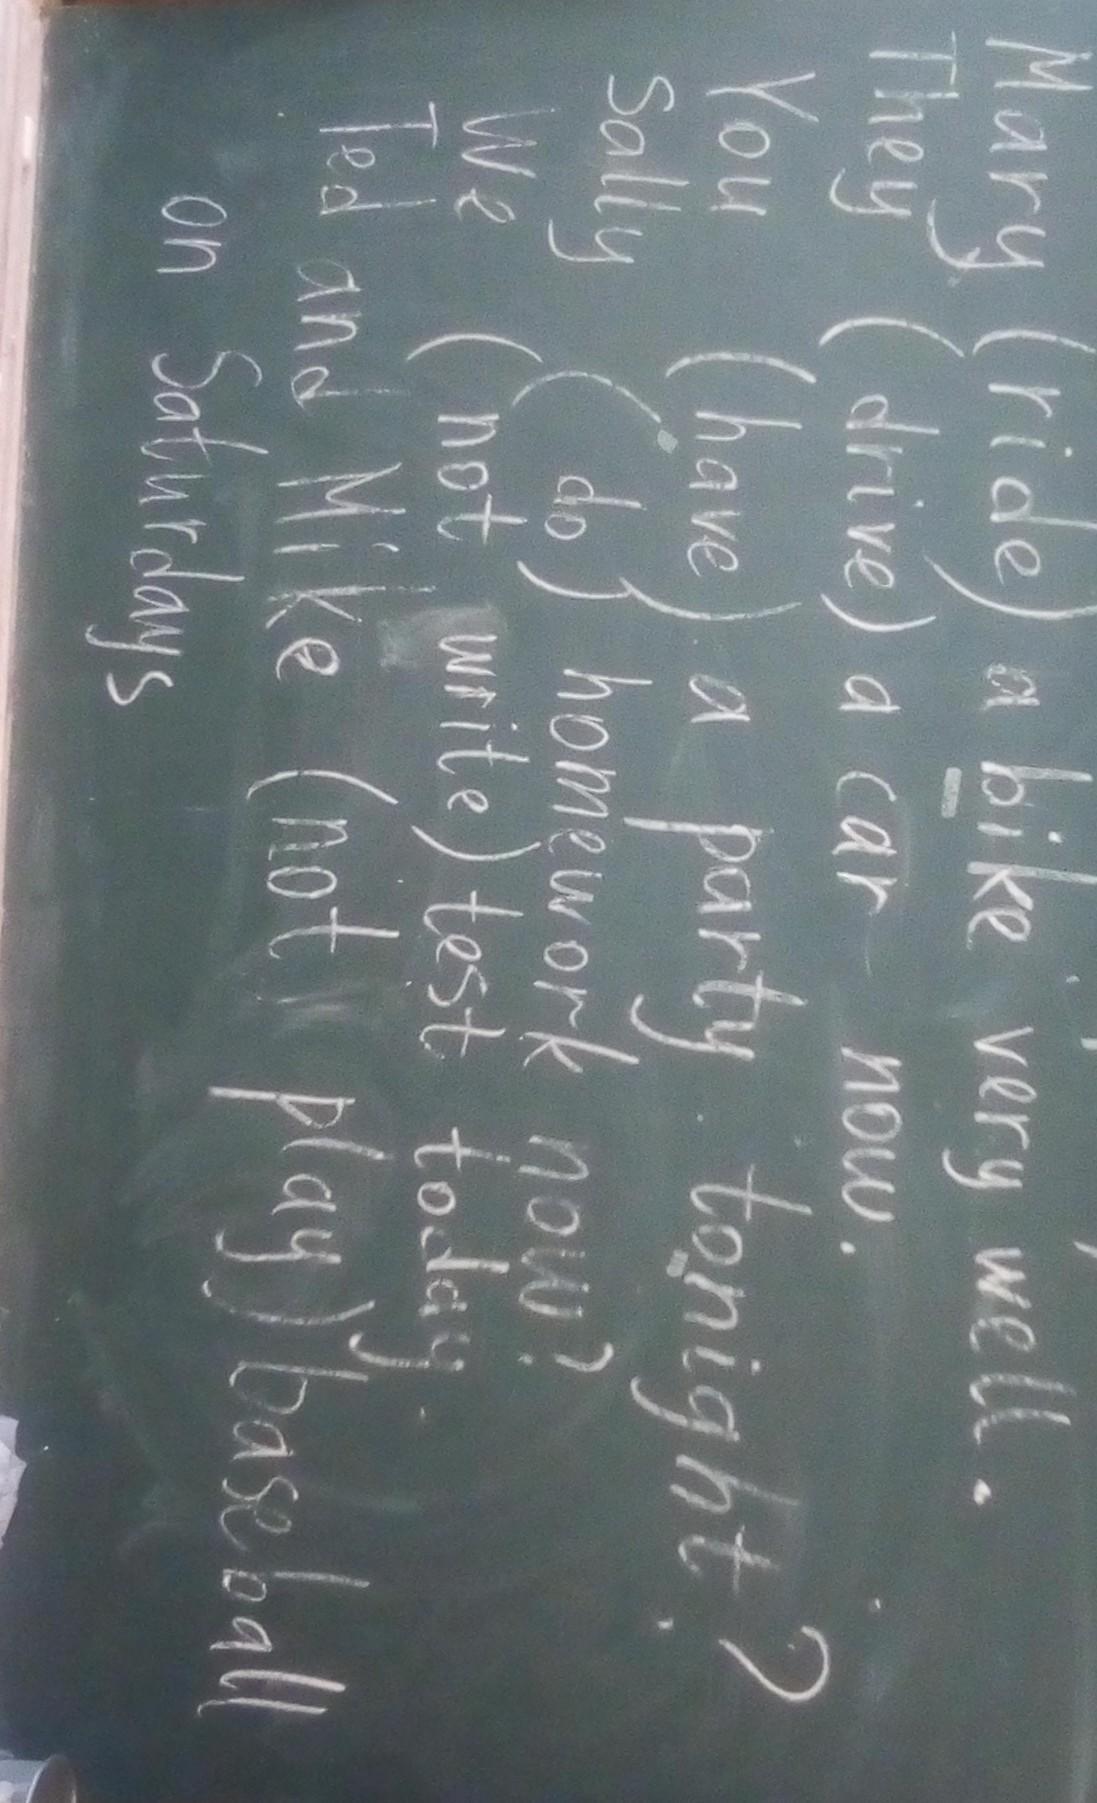 Mary (ride) a bike very well.
They (drive) a car now.
You (have) a party tonight?
Sally (do) homework now?
We (not write) test today.
Ted and Mike (not play) baseball
on Saturdays